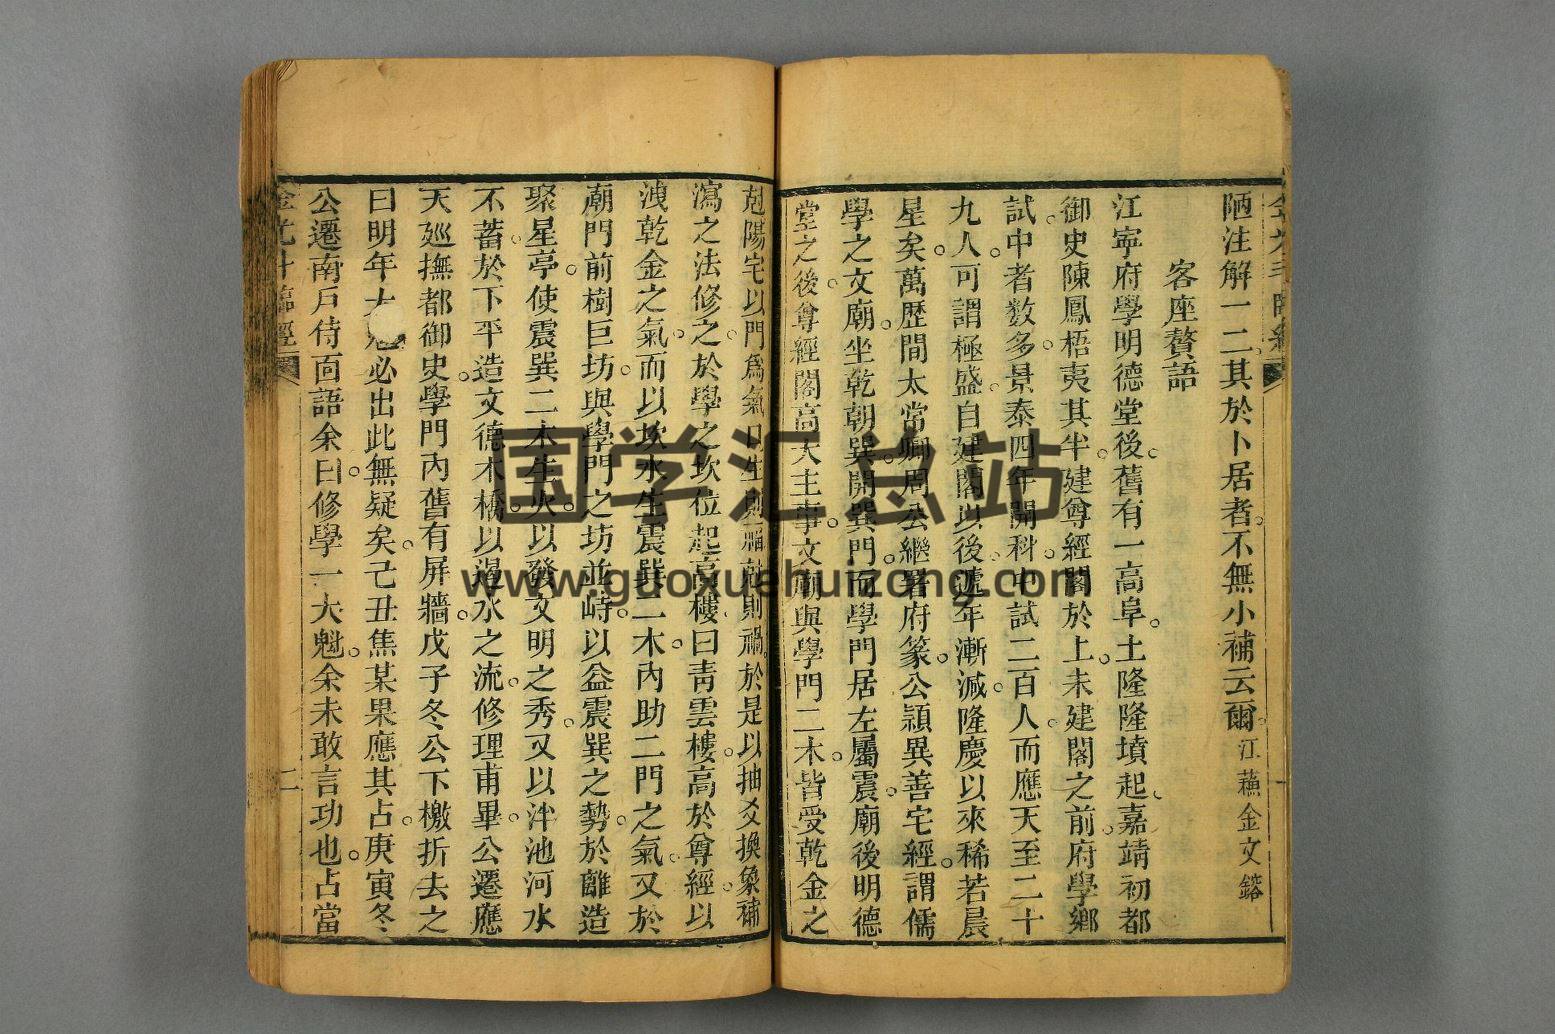 陋注解一二其於卜居者不無小補云爾江蘓金文鎔
客座贅語
江寧府學明德堂後舊有一高阜土隆隆墳起嘉靖初都
御史陳鳳梧夷其半建尊經閣於上未建閣之前府學鄉
試中者數多景泰四年開科中試二百人而應天至二十
九人可謂極盛自建閣以後遞年漸減隆慶以來稀若晨
星矣萬歷間太常卿周公繼署府篆公頴異善宅經謂儒
學之文廟坐乾朝巽開巽門而學門居左屬震廟後明德
堂之後尊經閣高大主事文廟與學門二木皆受乾金之
尅陽宅以門為氣口生則福尅則禍於是以抽爻換象補
瀉之法修之於學之坎位起高樓曰青雲樓高於尊經以
洩乾金之氣而以坎水生震巽二木內助二門之氣又於
廟門前樹巨坊與學門之坊並峙以益震巽之勢於離造
聚星亭使震巽二木生火以發文明之秀又以泮池河水
不蓄於下手造文德木橋以遏水之流修理甫畢公遷應
天廵撫都御史學門內舊有屏牆戊子冬公下檄折去之
曰明年大魁必出此無疑矣己丑焦某果應其占庚寅冬
公遷南戶侍面語余曰修學一大魁余未敢言功也占當
二
国学汇总站
www.guoxuehuizong.com